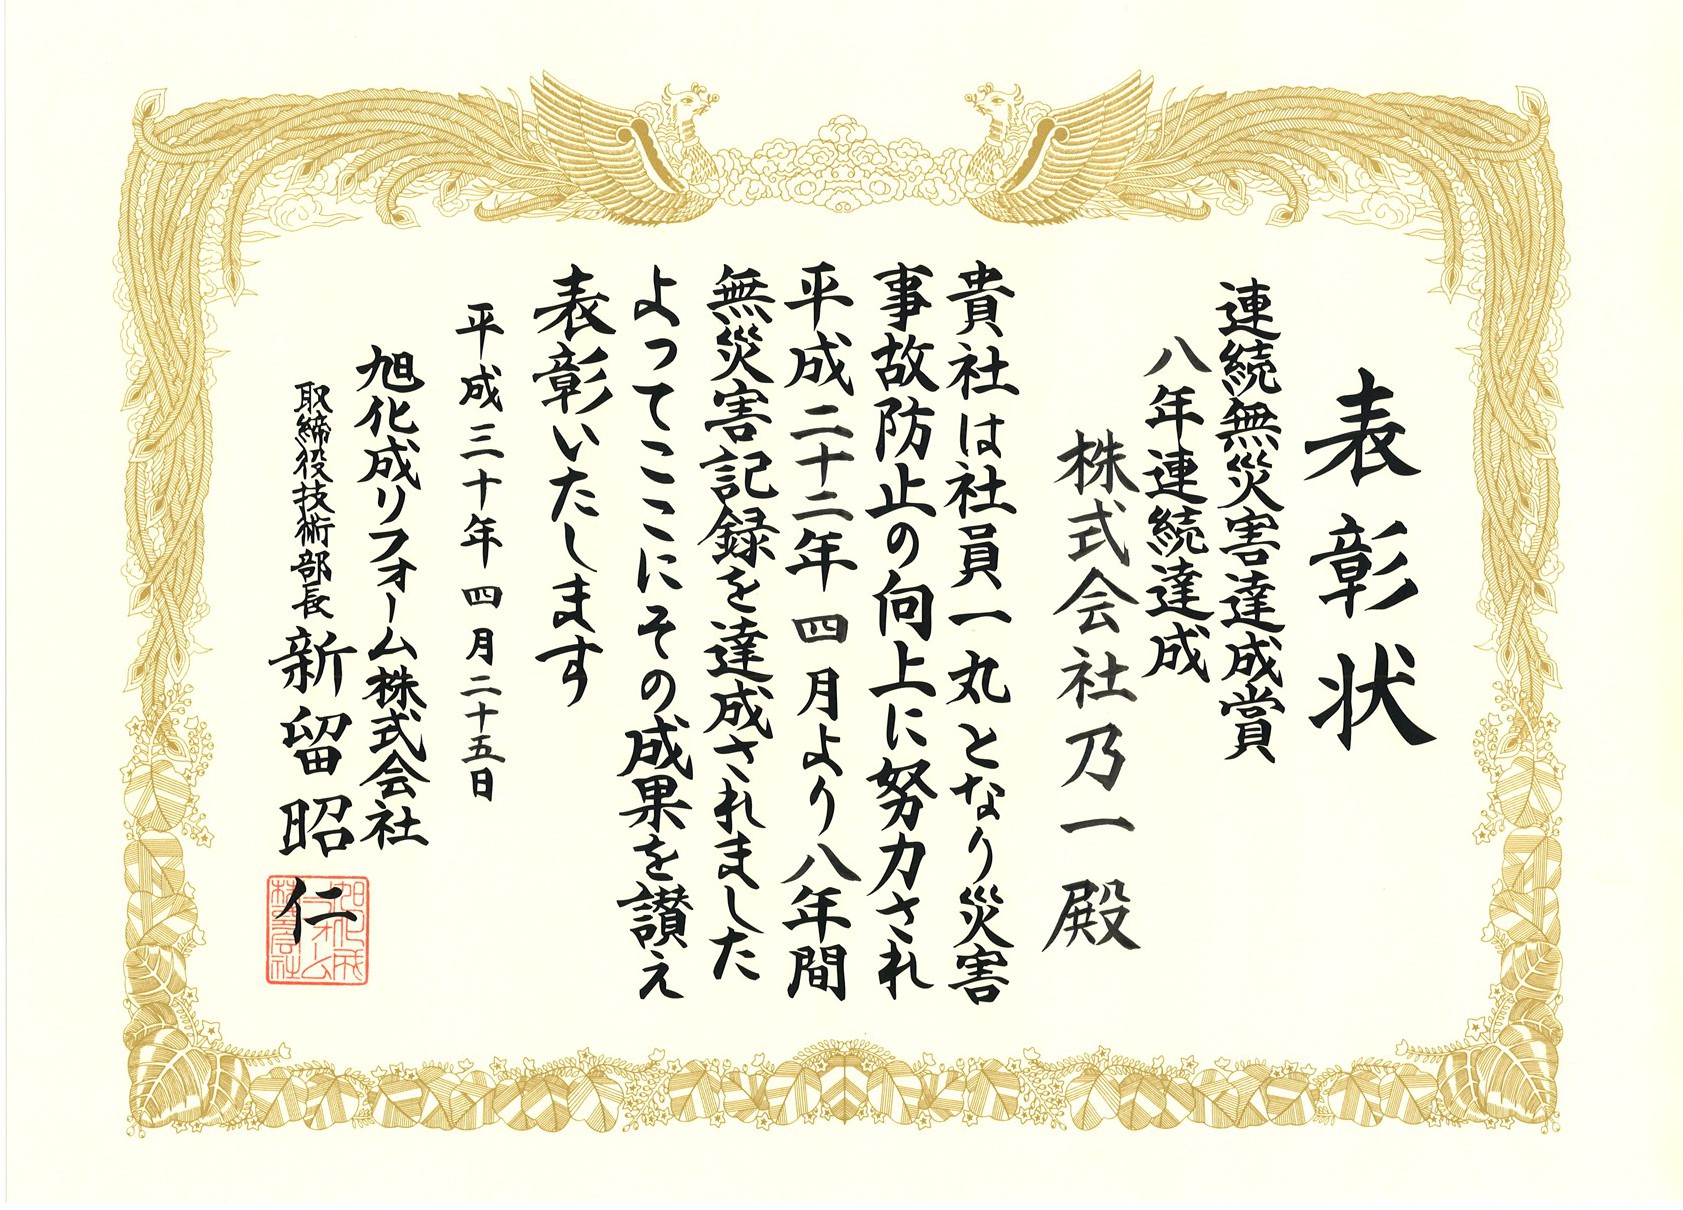 表彰状
連続無災害達成賞
八年連続達成
株式会社乃一殿
貴社は社員一丸となり災害
事故防止の向上に努力され
平成二十二年四月より八年間
無災害記録を達成されました
よってここにその成果を讃え
表彰いたします
平成三十年四月二十五日
旭化成リフォーム株式会社
取締役技術部長 新留昭仁